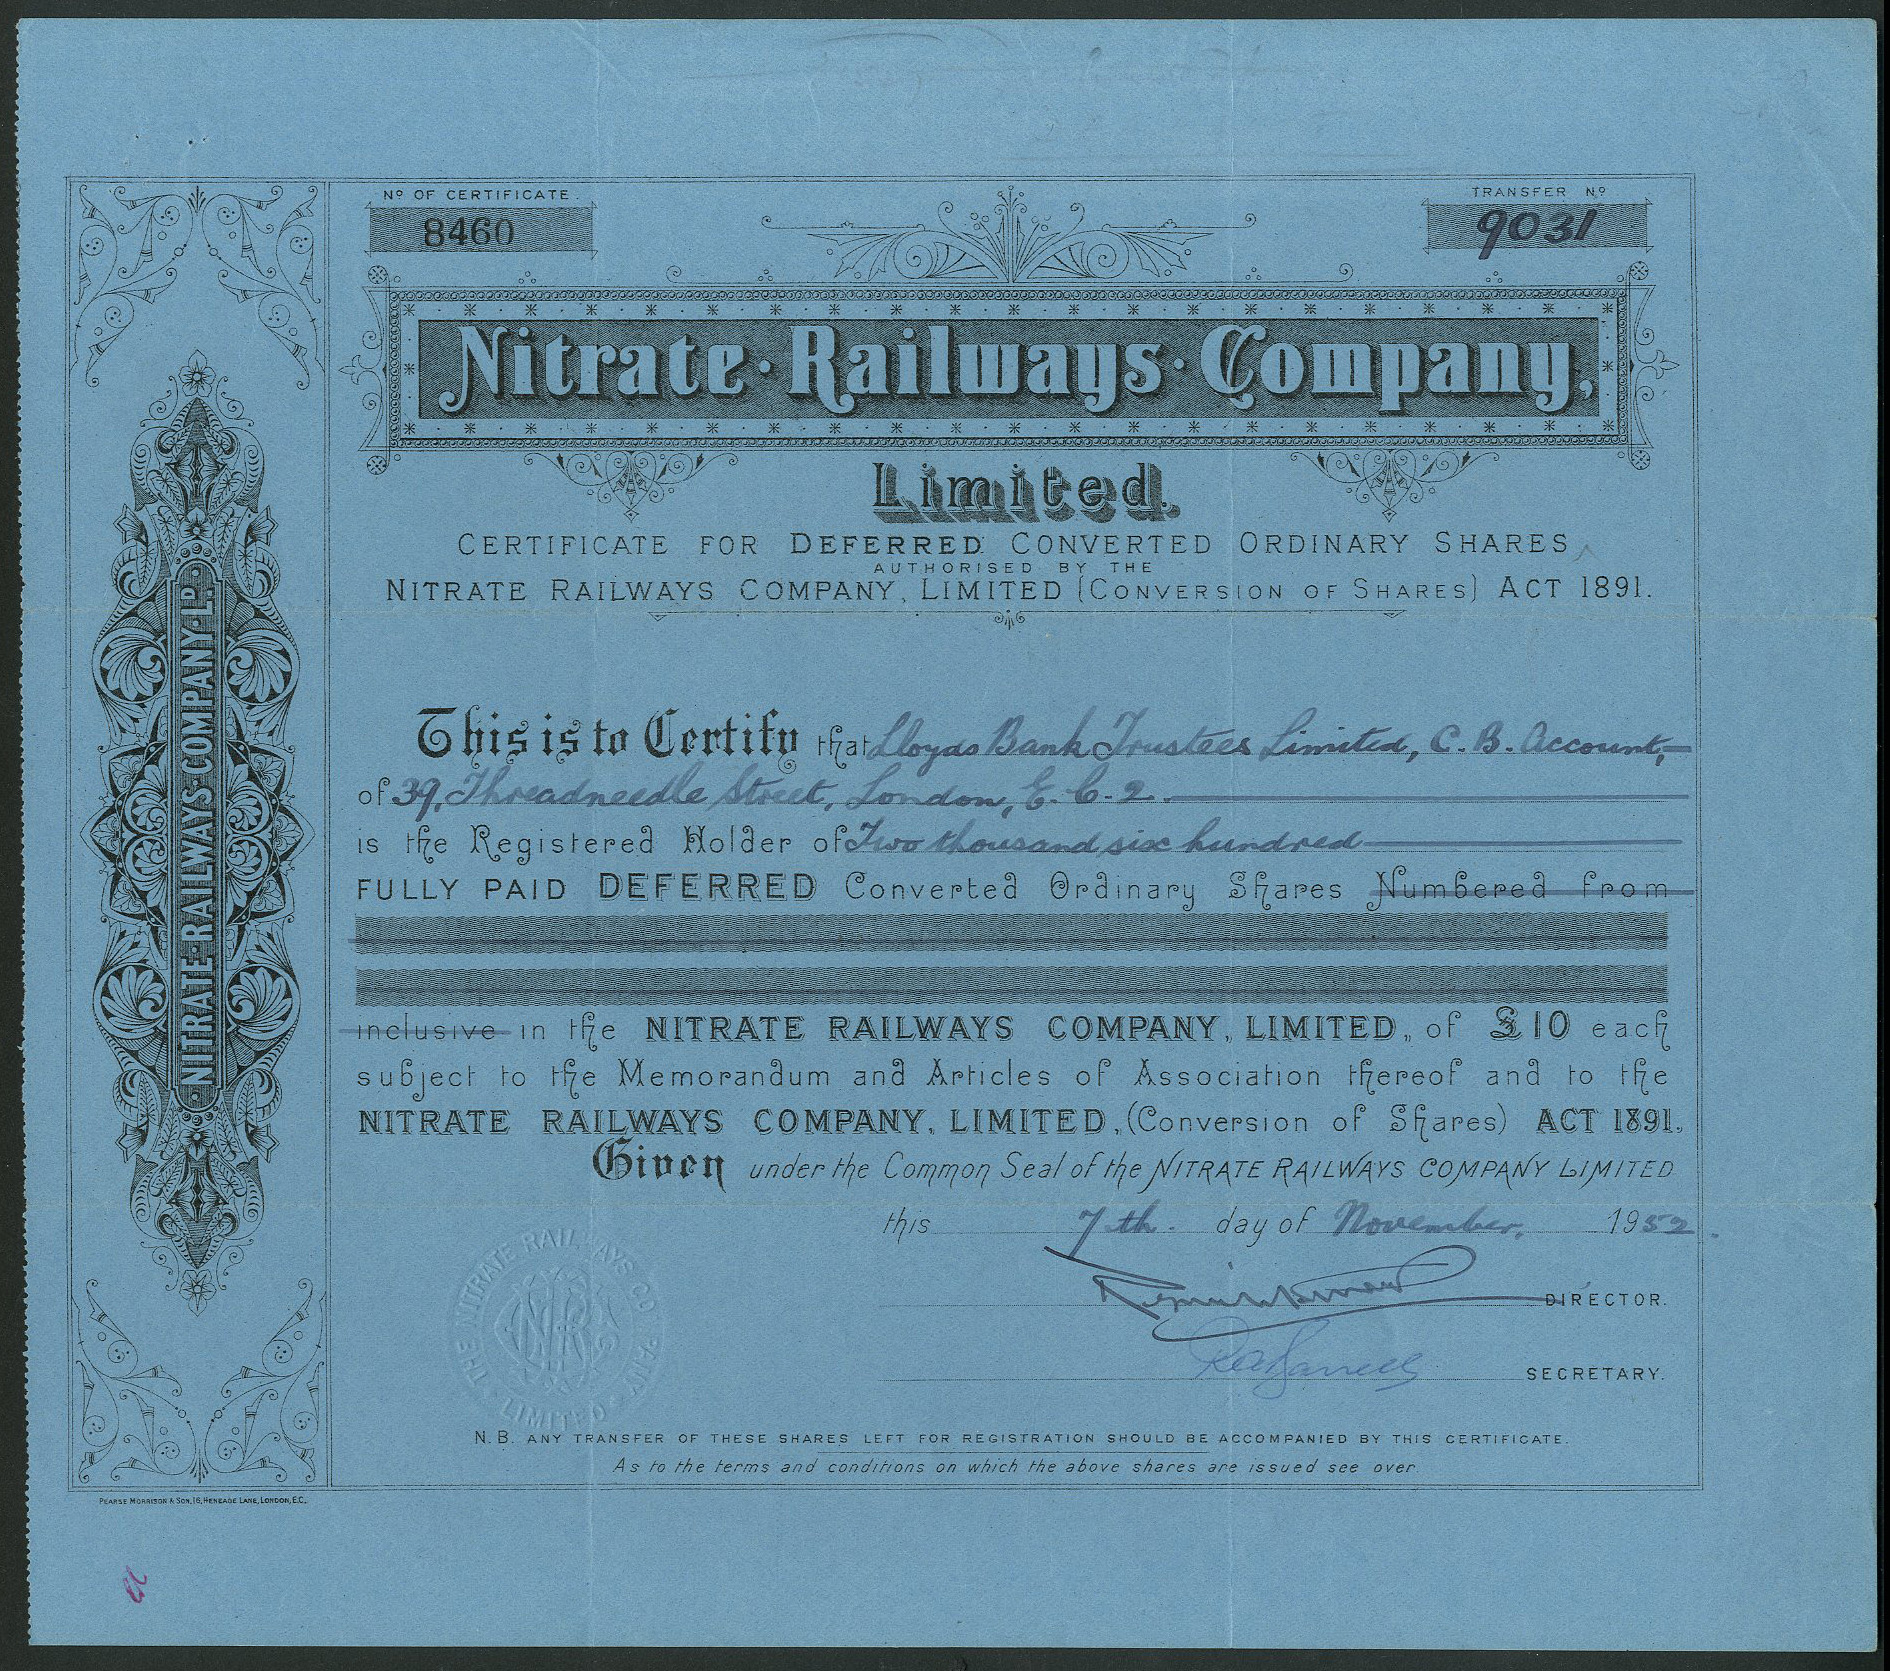 Nº OF CERTIFICATE.
8460
TRANSFER Nº
9031
Nitrate · Railways · Company,
Limited.
CERTIFICATE FOR DEFERRED CONVERTED ORDINARY SHARES
AUTHORISED BY THE
NITRATE RAILWAYS COMPANY, LIMITED (CONVERSION OF SHARES) ACT 1891.
NITRATE · RAILWAYS · COMPANY · LD.
This is to Certify that Lloyds Bank Trustees Limited, C. B. Account,
of 39, Threadneedle Street, London, E. C. 2.
is the Registered Holder of Two thousand six hundred
FULLY PAID DEFERRED Converted Ordinary Shares Numbered from
inclusive in the NITRATE RAILWAYS COMPANY, LIMITED, of £10 each
subject to the Memorandum and Articles of Association thereof and to the
NITRATE RAILWAYS COMPANY, LIMITED, (Conversion of Shares) ACT 1891.
Given under the Common Seal of the NITRATE RAILWAYS COMPANY LIMITED
this 7th. day of November, 1952.
DIRECTOR.
SECRETARY.
THE NITRATE RAILWAYS COMPANY LIMITED
N.B. ANY TRANSFER OF THESE SHARES LEFT FOR REGISTRATION SHOULD BE ACCOMPANIED BY THIS CERTIFICATE.
As to the terms and conditions on which the above shares are issued see over.
PEARSE MORRISON & SON, 16, HENEAGE LANE, LONDON, E.C.